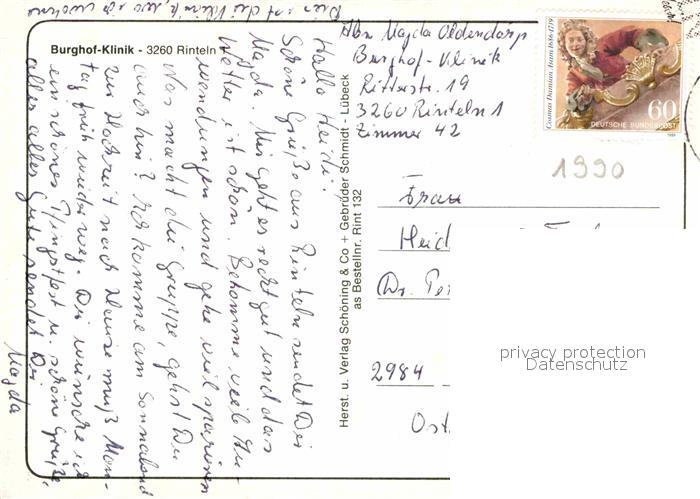 Dies ist die Klinik, wo ich wohne
Burghof-Klinik - 3260 Rinteln
Hallo Heidi!
Schöne Grüße aus Rinteln sendet Dir
Magda. Mir geht es recht gut und das
Wetter ist schön. Bekomme viele An-
wendungen und gehe viel spazieren
Was macht die Gruppe, gehst Du
auch hin? Ich komme am Sonnabend
zur Hochzeit nach Hause muß Mon-
tag früh wieder weg. Dir wünsche ich
ein schönes Pfingstfest u. schöne Grüße,
alles alles Gute sendet Dir
Magda
Herst. u. Verlag Schöning & Co + Gebrüder Schmidt - Lübeck
as Bestellnr. Rint 132
Abs. Magda Oldendorp
Burghof-Klinik
Ritterstr. 19
3260 Rinteln 1
Zimmer 42
Cosmas Damian Asam 1686-1739
60
DEUTSCHE BUNDESPOST
1990
Frau
Heid
Dr.
2984
Ost
privacy protection
Datenschutz